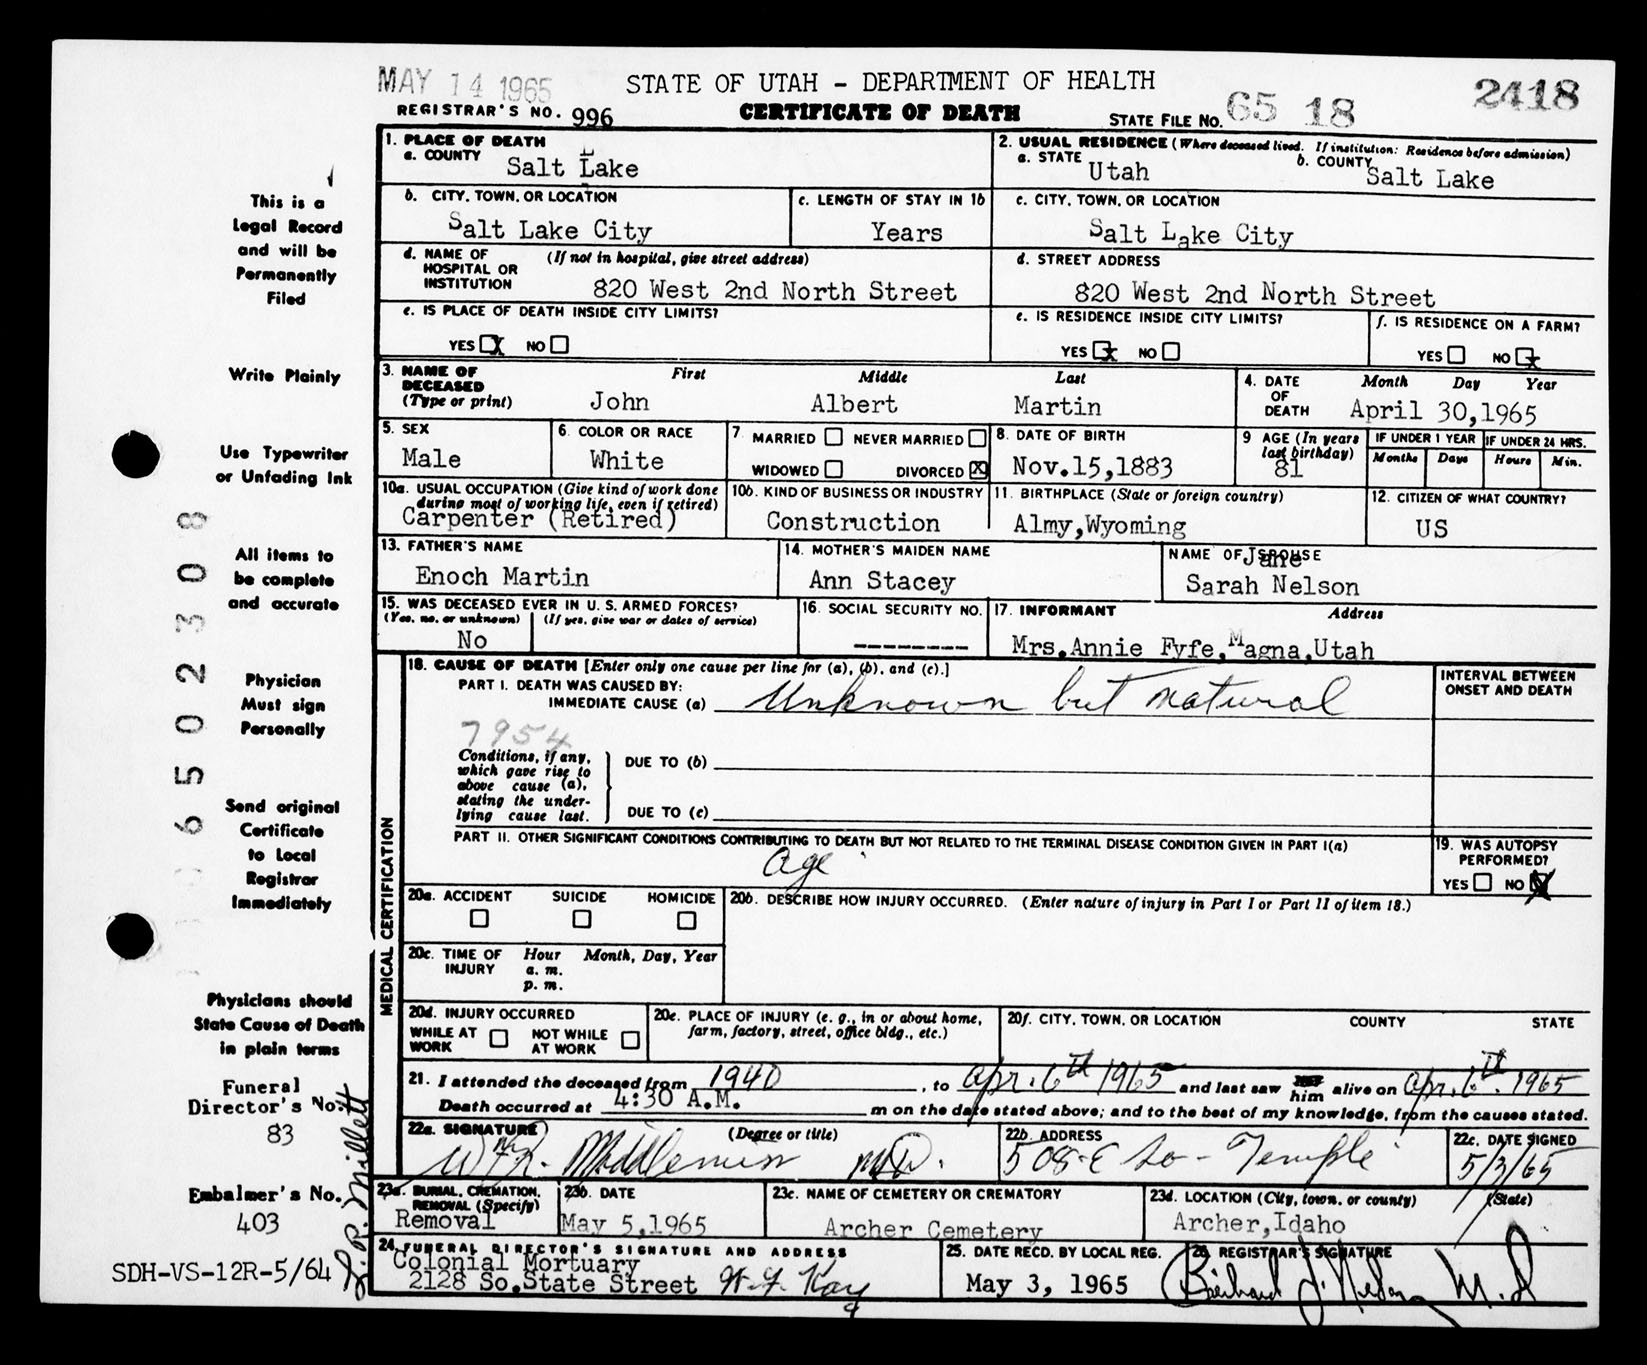 MAY 14 1965 STATE OF UTAH - DEPARTMENT OF HEALTH 2418
REGISTRAR'S NO. 996 CERTIFICATE OF DEATH STATE FILE NO. 65 18
1. PLACE OF DEATH
a. COUNTY Salt Lake
2. USUAL RESIDENCE (Where deceased lived. If institution: Residence before admission)
a. STATE Utah b. COUNTY Salt Lake
b. CITY, TOWN, OR LOCATION Salt Lake City
c. LENGTH OF STAY IN 1b Years
c. CITY, TOWN, OR LOCATION Salt Lake City
d. NAME OF HOSPITAL OR INSTITUTION (If not in hospital, give street address) 820 West 2nd North Street
d. STREET ADDRESS 820 West 2nd North Street
e. IS PLACE OF DEATH INSIDE CITY LIMITS?
YES X NO
e. IS RESIDENCE INSIDE CITY LIMITS?
YES X NO
f. IS RESIDENCE ON A FARM?
YES NO X
3. NAME OF DECEASED (Type or print) First Middle Last
John Albert Martin
4. DATE OF DEATH Month Day Year
April 30,1965
5. SEX Male
6. COLOR OR RACE White
7 MARRIED NEVER MARRIED
WIDOWED DIVORCED X
8. DATE OF BIRTH Nov.15,1883
9 AGE (In years last birthday) 81
IF UNDER 1 YEAR Months Days
IF UNDER 24 HRS. Hours Min.
10a. USUAL OCCUPATION (Give kind of work done during most of working life, even if retired)
Carpenter (Retired)
10b. KIND OF BUSINESS OR INDUSTRY Construction
11. BIRTHPLACE (State or foreign country) Almy,Wyoming
12. CITIZEN OF WHAT COUNTRY? US
13. FATHER'S NAME Enoch Martin
14. MOTHER'S MAIDEN NAME Ann Stacey
NAME OF SPOUSE Jane
Sarah Nelson
15. WAS DECEASED EVER IN U. S. ARMED FORCES?
(Yes, no, or unknown) (If yes, give war or dates of service)
No
16. SOCIAL SECURITY NO. ---------
17. INFORMANT Address
Mrs.Annie Fyfe,Magna,Utah
18. CAUSE OF DEATH [Enter only one cause per line for (a), (b), and (c).]
PART I. DEATH WAS CAUSED BY:
IMMEDIATE CAUSE (a) Unknown but natural
INTERVAL BETWEEN ONSET AND DEATH
7954
Conditions, if any, which gave rise to above cause (a), stating the underlying cause last.
DUE TO (b)
DUE TO (c)
PART II. OTHER SIGNIFICANT CONDITIONS CONTRIBUTING TO DEATH BUT NOT RELATED TO THE TERMINAL DISEASE CONDITION GIVEN IN PART I(a)
Age
19. WAS AUTOPSY PERFORMED?
YES NO X
MEDICAL CERTIFICATION
20a. ACCIDENT SUICIDE HOMICIDE
20b. DESCRIBE HOW INJURY OCCURRED. (Enter nature of injury in Part I or Part II of item 18.)
20c. TIME OF INJURY Hour Month, Day, Year
a. m.
p. m.
20d. INJURY OCCURRED
WHILE AT WORK NOT WHILE AT WORK
20e. PLACE OF INJURY (e. g., in or about home, farm, factory, street, office bldg., etc.)
20f. CITY, TOWN, OR LOCATION COUNTY STATE
21. I attended the deceased from 1940, to Apr. 6th 1965 and last saw him alive on Apr. 6th. 1965
Death occurred at 4:30 A.M. m on the date stated above; and to the best of my knowledge, from the causes stated.
22a. SIGNATURE (Degree or title)
Wm R. Middlemiss MD.
22b. ADDRESS 508-E So- Temple
22c. DATE SIGNED 5/3/65
23a. BURIAL, CREMATION, REMOVAL (Specify) Removal
23b. DATE May 5,1965
23c. NAME OF CEMETERY OR CREMATORY Archer Cemetery
23d. LOCATION (City, town, or county) (State)
Archer,Idaho
24. FUNERAL DIRECTOR'S SIGNATURE AND ADDRESS
Colonial Mortuary
2128 So.State Street
25. DATE RECD. BY LOCAL REG. May 3, 1965
26. REGISTRAR'S SIGNATURE
M.D
This is a
Legal Record
and will be
Permanently
Filed
Write Plainly
Use Typewriter
or Unfading Ink
All items to
be complete
and accurate
Physician
Must sign
Personally
Send original
Certificate
to Local
Registrar
Immediately
Physicians should
State Cause of Death
in plain terms
Funeral
Director's No.
83
Embalmer's No.
403
SDH-VS-12R-5/64
J.P. Millett
6502308